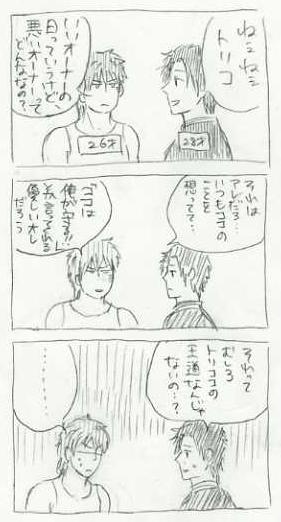 ねェねェ
トリコ
いいオーナーの
日っていうけど、
悪いオーナーって
どんななの?
26才
28才
それは
アレだろ…
いつもココの
ことを
想ってて…
「ココは
俺が守る!!」
が言える
優しいオレ
だろう
それって
むしろ
トリココの
王道なんじゃ
ないの…?
………